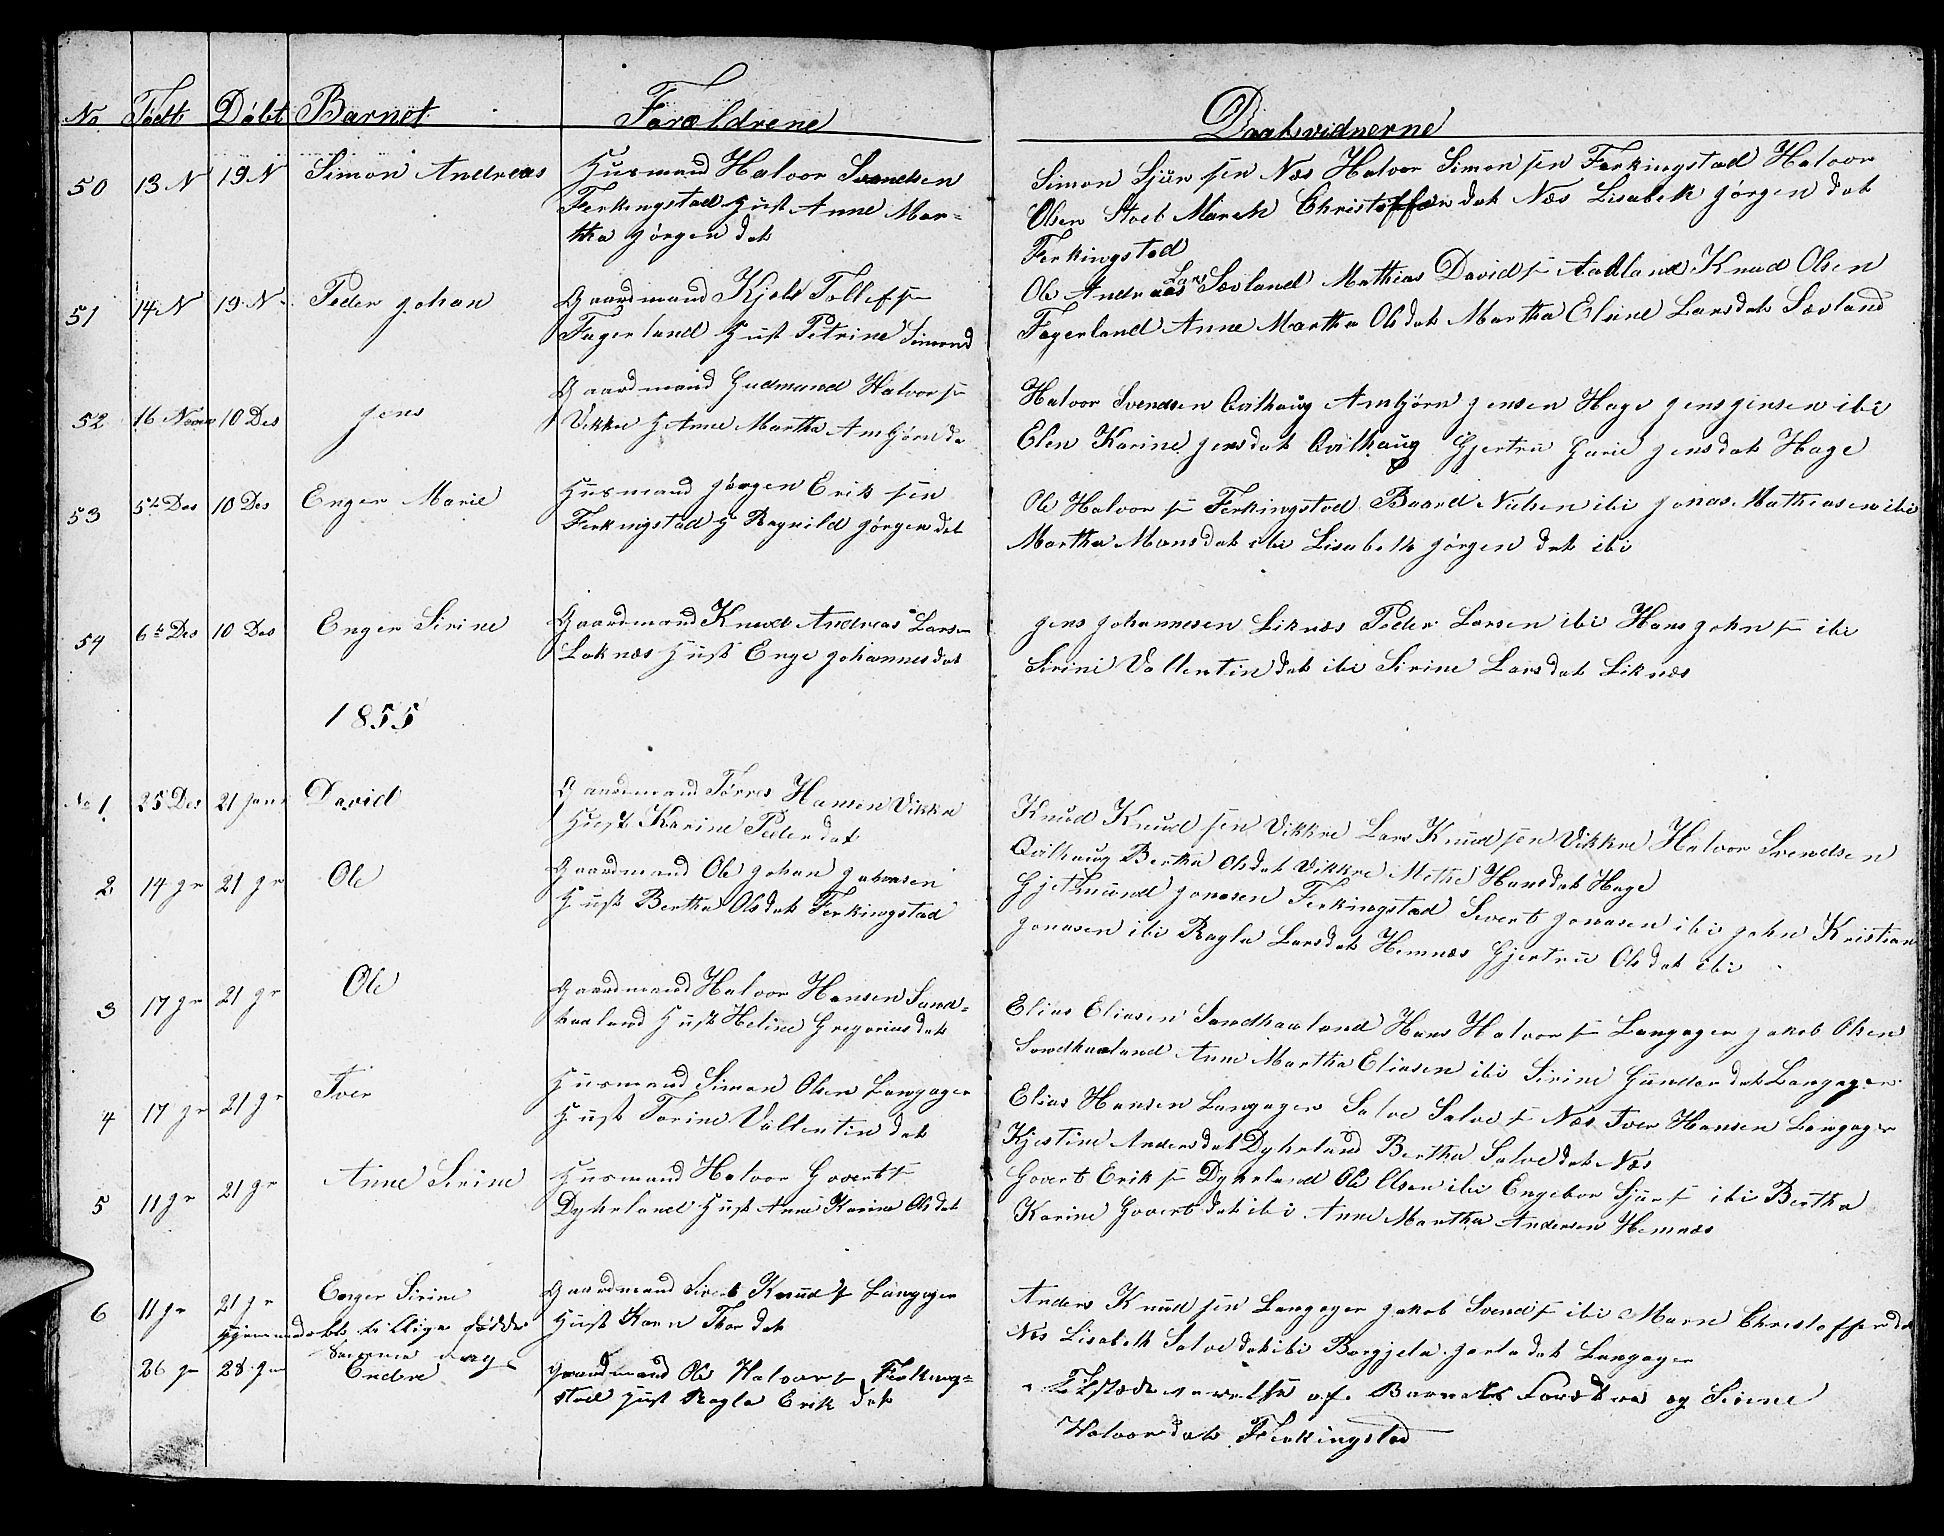 No Født Døbt Barnet Forældrene Daabsvidnerne
50 13 N 19 N Simon Andreas Husmand Halvor Svendsen
Ferkingstad Hust Anne Mar-
tha Jørgen dat
Simon Sjur sen Næs Halvor Simon sen Ferkingstad Halvor
Olsen Stol Mareh Christoffer dat Næs Lisabeth Jørgen dat
Ferkingstad
51 14 N 19 N Peder Johan Gaardmand Kjeld Tollefs
Fagerland Hust Petrine Simond
Ole Andreas Lars Sævland Mathias Davids Aadland Knud Olsen
Fagerland Anne Martha Olsdat Martha Eline Larsdat Sævland
52 16 Novem 10 Des Jens Gaardmand Gudmund Halvors
Vikre H Anne Martha Ambjørnda
Halvor Svendsen Qvilhaug Ambjørn Jensen Hage Jens Jensen ibi
Elen Karine Jensdat Qvilhaug Gjertru Jensdat Hage
53 5te Des 10 Des Enger Marie Husmand Jørgen Erik sen
Ferkingstad H Ragnild Jørgen dat
Ole Halvor s Ferkingstad Baard Nielsen ibi Jonas Mathiasen ibi
Martha Monsdat ibi Lisabeth Jørgen dat ibi
54 6te Des 10 Des Enger Sirine Gaardmand Knud Andreas Larsen
Loknæs Hust Enge Johannesdat
Jens Johannesen Liknæs Peder Larsen ibi Hans John s ibi
Sirini Vallentin dat ibi Sirine Larsdat Liknæs
1855
No 1 25 Des 21 Jan David Gaardmand Tørres Hansen Vikre
Hust Karine Peder dat
Knud Knud sen Vikkre Lars Knud sen Vikkre Halvor Svendsen
Qvilhaug Bertha Olsdat Vikkre Methe Hansdat Hage
2 14 Jr 21 Jr Ole Gaardmand Ole Johan Johnsen
Hust Bertha Olsdat Ferkingstad
Gjetmund Jonasen Ferkingstad Sivert Jonasen ibi John Kristian
Jonasen ibi Ragla Larsdat Hemnæs Gjertru Olsdat ibi
3 17 Jr 21 Jr Ole Gaardmand Halvor Hansen Sand-
haaland Hust Heline Gregoriusdat
Elias Eliasen Sandhaaland Hans Halvor s Langager Jakob Olsen
Sandhaaland Anne Martha Eliasen ibi Sirine Gunder dat Langager
4 17 Jr 21 Jr Iver Husmand Simon Olsen Langager
Hust Torine Vallentin dat
Elias Hansen Langager Salve Salve s Næs Iver Hansen Langager
Kjestine Andersdat Dyhrland Bertha Salvedat Næs
5 11 Jr 21 Jr Anne Sirine Husmand Halvor Goverts
Dyhrland Hust Anne Karine Olsdat
Govert Erik s Dyhrland Ole Olsen ibi Engebor Sjur s ibi Bertha
Karine Govert dat ibi Anne Martha Andersen Hemnæs
6 11 Jr 21 Jr Enger Sirine Gaardmand Sivert Knud s Langager
Hust Karn Thor dat
Anders Knud sen Langager Jakob Svend s ibi Marn Christoffer dat
Næs Lisabeth Salve dat ibi Borgjela dat Langager
Hjemmedøbt
26 Jr 28 Jan Endre Gaardmand Ole Halvor s Ferking-
stad Hust Ragla Erik dat
Tilstædeværelse af Barnets Forældre og Sirine
Halvordat Ferkingstad